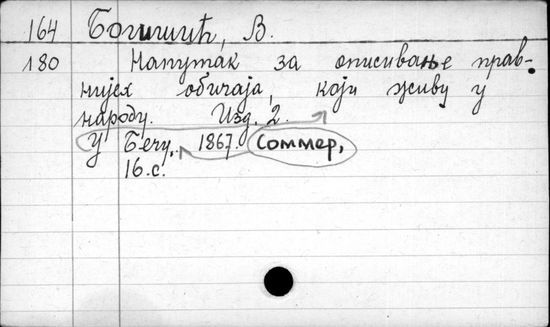 164 Богишић, В.
180 Напутак за описивање прав-
нијех обичаја, који живу у
народу. Изд. 2.
У Бечу, 1867. Соммер,
16.с.